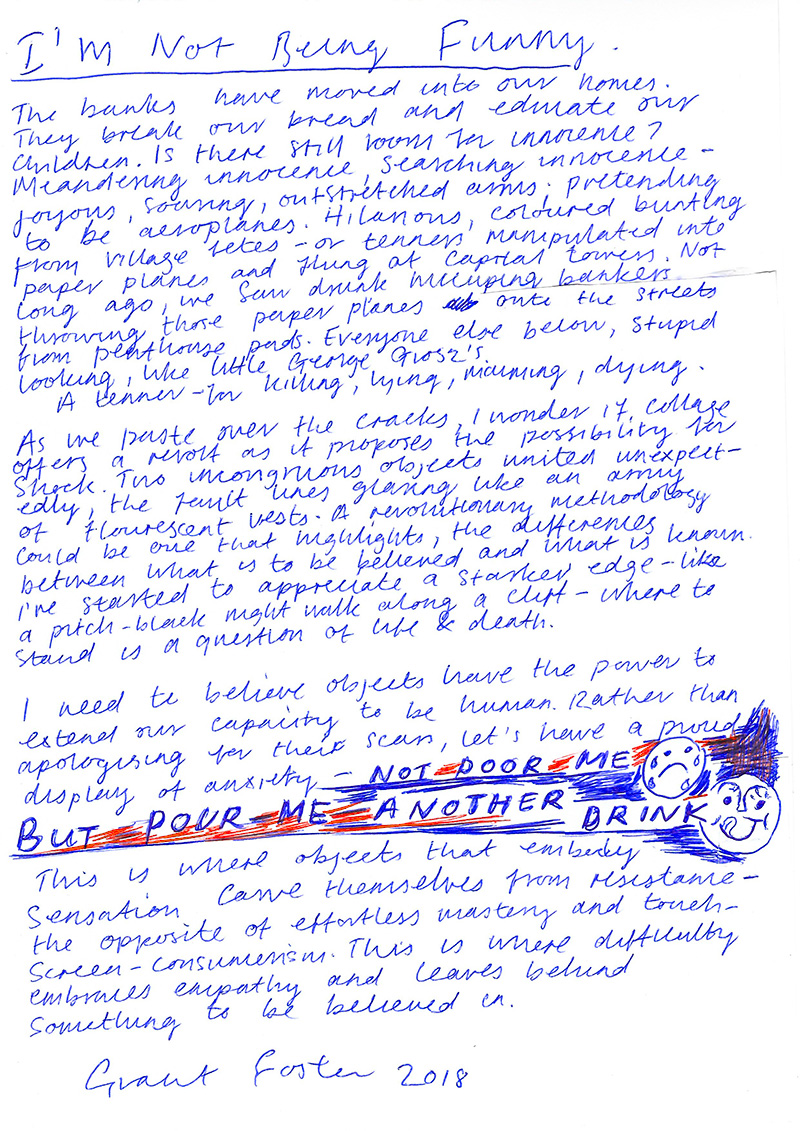 I'm Not Being Funny.
The banks have moved into our homes.
They break our bread and educate our
children. Is there still room for innocence?
Meandering innocence, searching innocence -
joyous, soaring, outstretched arms. Pretending
to be aeroplanes. Hilarious, coloured bunting
from village fetes - or tenners manipulated into
paper planes and flung at Capital towers. Not
long ago, we saw drunk hiccuping bankers
throwing those paper planes onto the streets
from penthouse pads. Everyone else below, stupid
looking, like little George Grosz's.
A tenner - for killing, lying, maiming, dying.
As we paste over the cracks, I wonder if collage
offers a revolt as it proposes the possibility for
shock. Two incongruous objects united unexpect-
edly, the fault lines glaring like an army
of flourescent vests. A revolutionary methodology
could be one that highlights, the differences
between what is to be believed and what is known.
I've started to appreciate a starker edge - like
a pitch-black night walk along a cliff - where to
stand is a question of life & death.
I need to believe objects have the power to
extend our capacity to be human. Rather than
apologising for their scars, let's have a proud
display of anxiety - NOT POOR ME
BUT POUR ME ANOTHER DRINK
This is where objects that embody
sensation carve themselves from resistance -
the opposite of effortless mastery and touch-
screen-consumerism. This is where difficulty
embraces empathy and leaves behind
something to be believed in.
Grant Foster 2018